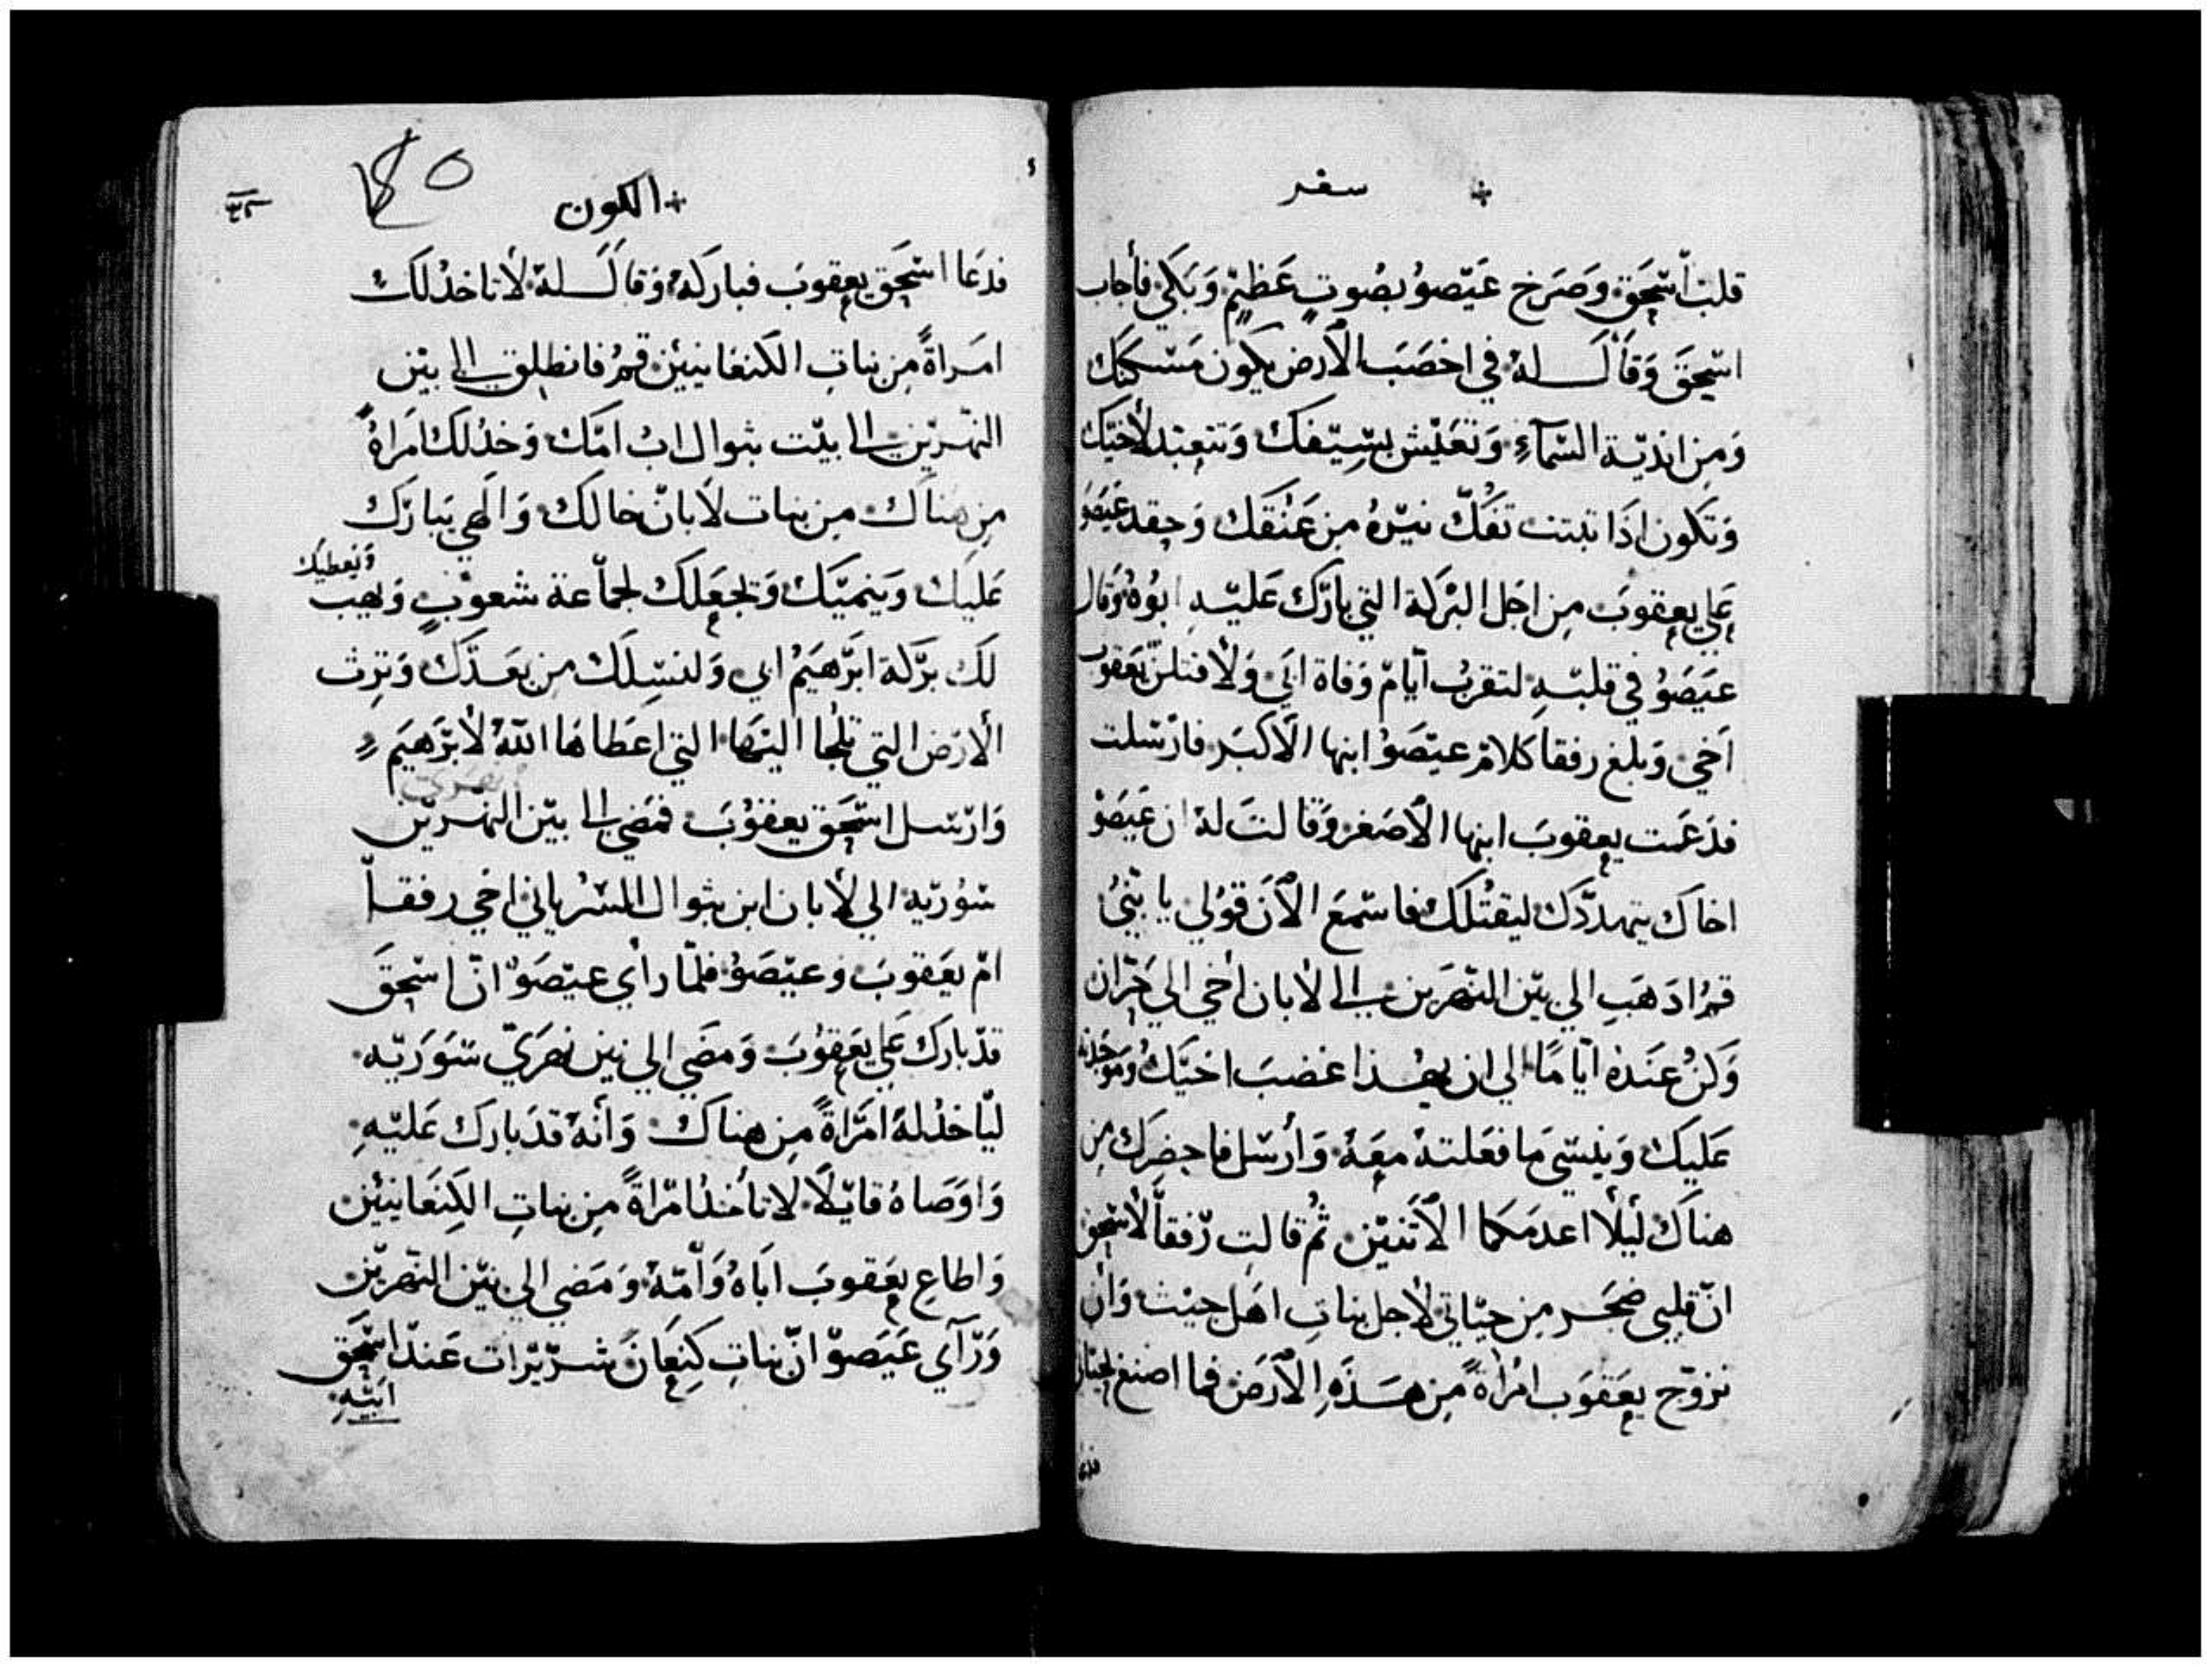 سفر
قلب اسّحَق وَصَرَخ عَيّصوُ بصُوتٍ عَظيمّ وَبَكي فأجاب
اسّحَق وَقاَل لهُ في اخصَبَ الأرض يكون مَسّكنك
وَمِن انديّة السّمآءِ وَتعَيّش بسِّيّفك وَتتعبّد لأخيّك
وَتكون اذا تبتت تفكّ نيّرهُ مِن عَنُقك وَحِقد عَيصَو
عَلي يعِقوبَ مِن اجَل البرَكة التي بارَّك عَليّهِ ابوُهُ وَقال
عيَصَوُ في قلبّهِ لتقربُ آيّامّ وَفاة ابَي وَلأقتلنّ يَعَقوب
اَخي وَبلَغ رفقا كلامّ عيّصَوُ ابنها الأكبَر فارّسَلت
فدَعَت يعِقوبَ ابنها الأصَغر وَقالتَ لهُ ان عَيَصَوُ
اخاك يتهددَّك ليقتُلكَ فاسّمعَ الأنَ قوُلي يا بنّيُ
قمُ ادَهَبِ الي بيّن النّهرَين الي لأبان أخي الي حَرّان
وَكنُ عِنَدهُ ايّامًا الي ان يهذا غضبَ اخيّكُ وَمَوجَدته
عَليَك وَينسّي مَا فعَلتهُ مِعَهُ وَأرسّل فاحِضرَك مِن
هناَك ليلأ اعدمَكما الأتنيّن ثمُ قالتِ رّفقاّ لأسّحق
انّ قلبي ضجَر مِن حيّاتي لأجل بناتِ اهَل حيث وَأن
تزوّج يعِقوَب امرُأةً مِن هَذَهِ الأرَض فما اصنع
الكون
٣٢
فدعَا اسّحَق يعِقوبَ فباركهُ وَقاَل لهُ لأتاخدُ لكَ
امَراةً مِن بناتِ الكنعانيّين قمُ فانطِلق الي بيّن
النهّريّن الي بيّت بثوال ابُ امّك وَخدُ لك امَراةً
مِن هناَك مِن بنات لاَبانّ خالكَ وَالَهي يَبارَك
عَليَك وَينميّك وَيجَعِلك لجماّعة شعوّبٍ وَيهب
وَيعطيك
لكَ برَّكة ابَرّهيَمُ ابي وَلنسّلِكَ مِن بعَدّك وَترِث
الأرَض التي تلَجا اليهَا التي اعَطاهَا اللهُ لأبرّهيَم
وَارّسل اسّحَق يعقوُبَ فمَضي الي بيّن النهّريّن
سّوُريّه الي لأبان ابن بثوال السّرُياني اخي رفقاّ
امّ يعَقوبَ وعيّصَوُ فلمّا رأي عيّصَوّ انّ اسّحَقَ
قدّ بارَك عَلي يعَقِوُبَ وَمضَي الي بين نهرَيّ سّوَرَيّه
ليّاخدُ لهُ امَرّاةً مِن هناك وَأنهُ قدَ بارَك عَليّهِ
وَاوَصَاهُ قايّلاً لاتأخدُ امّراةً مِن بناتِ الكِنَعَانيّين
وَاطاعِ يعِقوبَ ابَاهُ وَاُمّهُ وَمَضي الي بيّن النّهريّن
وَرّآي عَيَصوّ انّ بناتِ كِنِعَانَ شرّيرّات عَندّ اسّحَق
ابَيّهِ